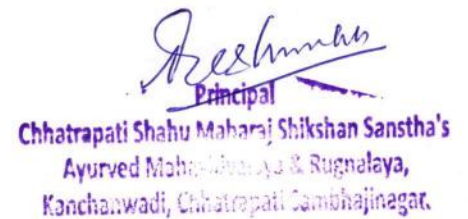 Principal
Chhatrapati Shahu Maharaj Shikshan Sanstha's
Ayurved & Rugnalaya,
Kanchanwadi, Chhatrapati Sambhajinagar.